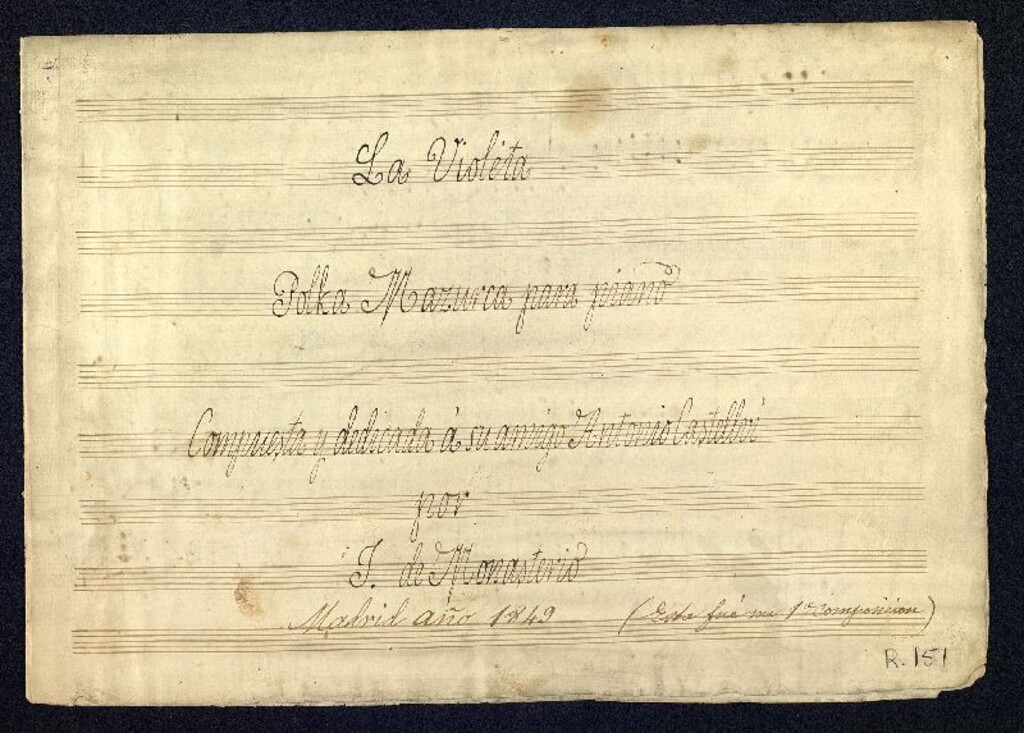 La Violeta
Polka Mazurca para piano
Compuesta y dedicada á su amigo Antonio Castelloé
por
J. de Monasterio
Madrid año 1849 (Esta fué mi 1ª composicion)
R. 151